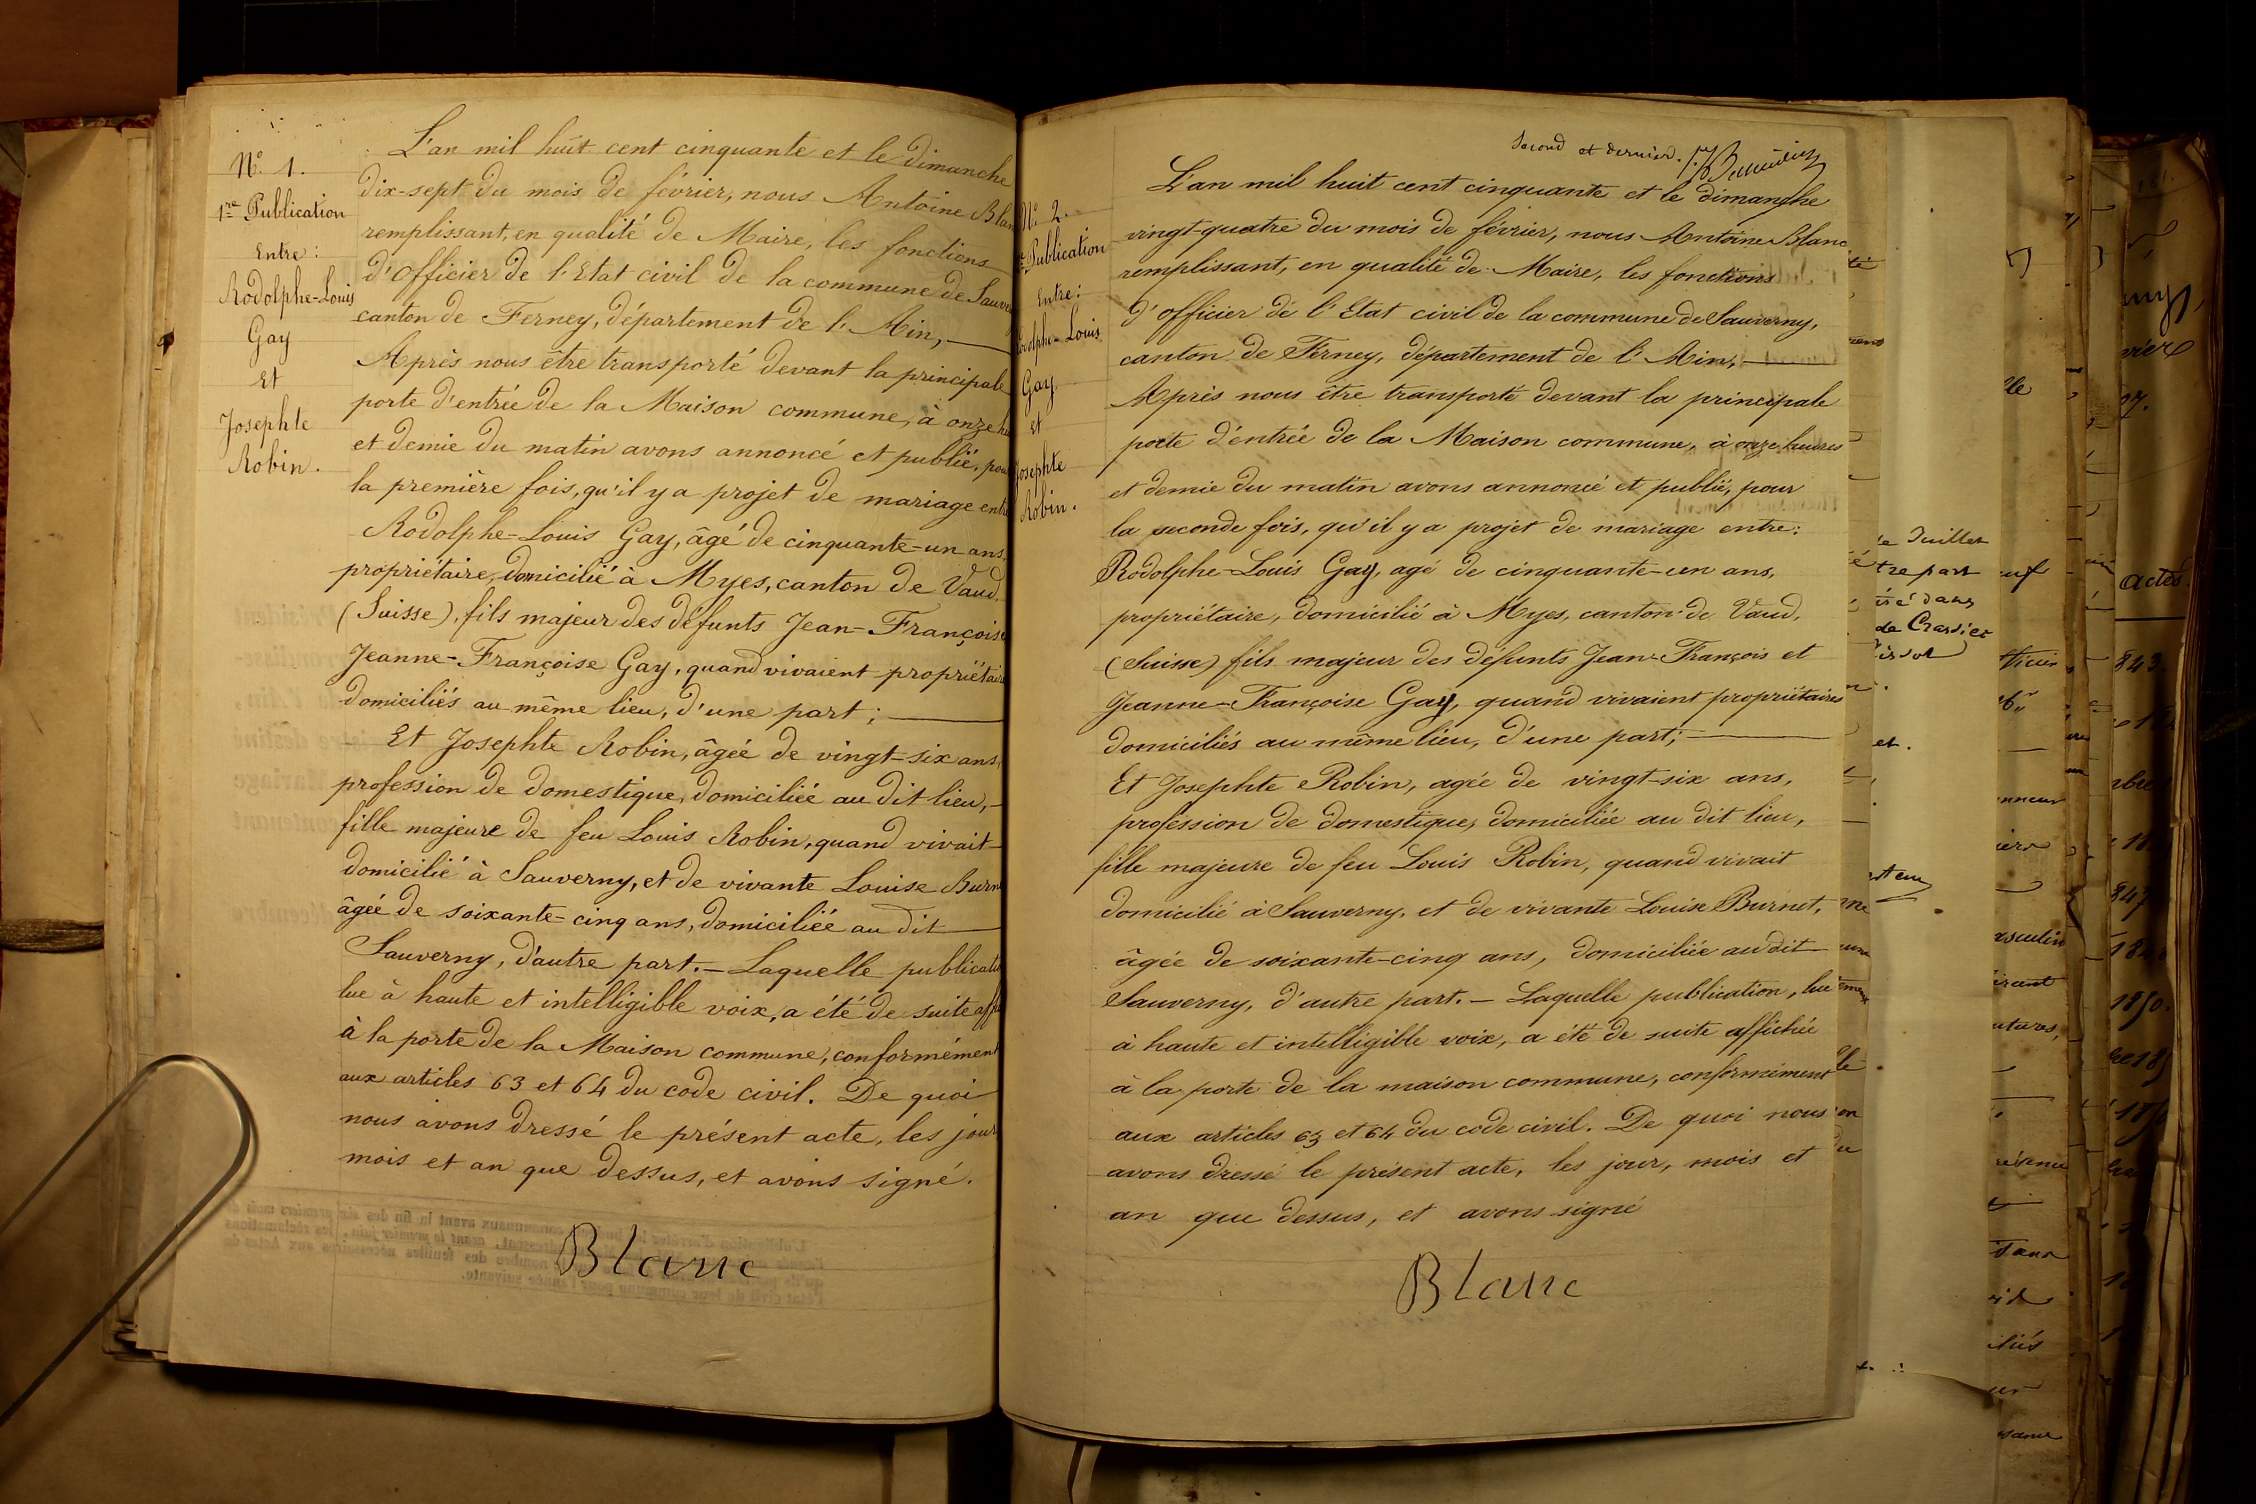 N° 1.
1re Publication
Entre :
Rodolphe-Louis
Gay
Et
Josephte
Robin.
L'an mil huit cent cinquante et le dimanche
dix-sept du mois de février, nous Antoine Blan
remplissant, en qualité de Maire, les fonctions
d'Officier de l'Etat civil de la commune de Sauver
canton de Ferney, département de l'Ain,
Après nous être transporté devant la principale
porte d'entrée de la Maison commune, à onze he
et demie du matin avons annoncé et publié, pour
la première fois, qu'il y a projet de mariage entre
Rodolphe-Louis Gay, âgé de cinquante-un ans,
propriétaire, domicilié à Myes, canton de Vaud,
(Suisse), fils majeur des défunts Jean-François
Jeanne-Françoise Gay, quand vivaient propriétair
domiciliés au même lieu, d'une part ;
Et Josephte Robin, âgée de vingt-six ans,
profession de domestique, domiciliée au dit lieu,
fille majeure de feu Louis Robin, quand vivait
domicilié à Sauverny, et de vivante Louise Burn
âgée de soixante-cinq ans, domiciliée au dit
Sauverny, d'autre part. — Laquelle publicati
lue à haute et intelligible voix, a été de suite affi
à la porte de la Maison commune, conformément
aux articles 63 et 64 du code civil. De quoi
nous avons dressé le présent acte, les jour
mois et an que dessus, et avons signé.
Blanc
Second et dernier.
N° 2.
Publication
Entre :
odolphe-Louis
Gay
Et
Josephte
Robin.
L'an mil huit cent cinquante et le dimanche
vingt-quatre du mois de février, nous Antoine Blanc
remplissant, en qualité de Maire, les fonctions
d'officier de l'Etat civil de la commune de Sauverny,
canton de Ferney, département de l'Ain,
Après nous être transporté devant la principale
porte d'entrée de la Maison commune, à onze heures
et demie du matin avons annoncé et publié, pour
la seconde fois, qu'il y a projet de mariage entre :
Rodolphe-Louis Gay, agé de cinquante-un ans,
propriétaire, domicilié à Myes, canton de Vaud,
(Suisse) fils majeur des défunts Jean-François et
Jeanne-Françoise Gay, quand vivaient propriétaires
domiciliés au même lieu, d'une part ;
Et Josephte Robin, agée de vingt-six ans,
profession de domestique, domiciliée au dit lieu,
fille majeure de feu Louis Robin, quand vivait
domicilié à Sauverny, et de vivante Louise Burnet,
âgée de soixante-cinq ans, domiciliée au dit
Sauverny, d'autre part. — Laquelle publication, lue
à haute et intelligible voix, a été de suite affichée
à la porte de la maison commune, conformément
aux articles 63 et 64 du code civil. De quoi nous
avons dressé le présent acte, les jour, mois et
an que dessus, et avons signé
Blanc
de Juillet
tre part
dans
de Crassier
et.
actes.
843
847
1850.